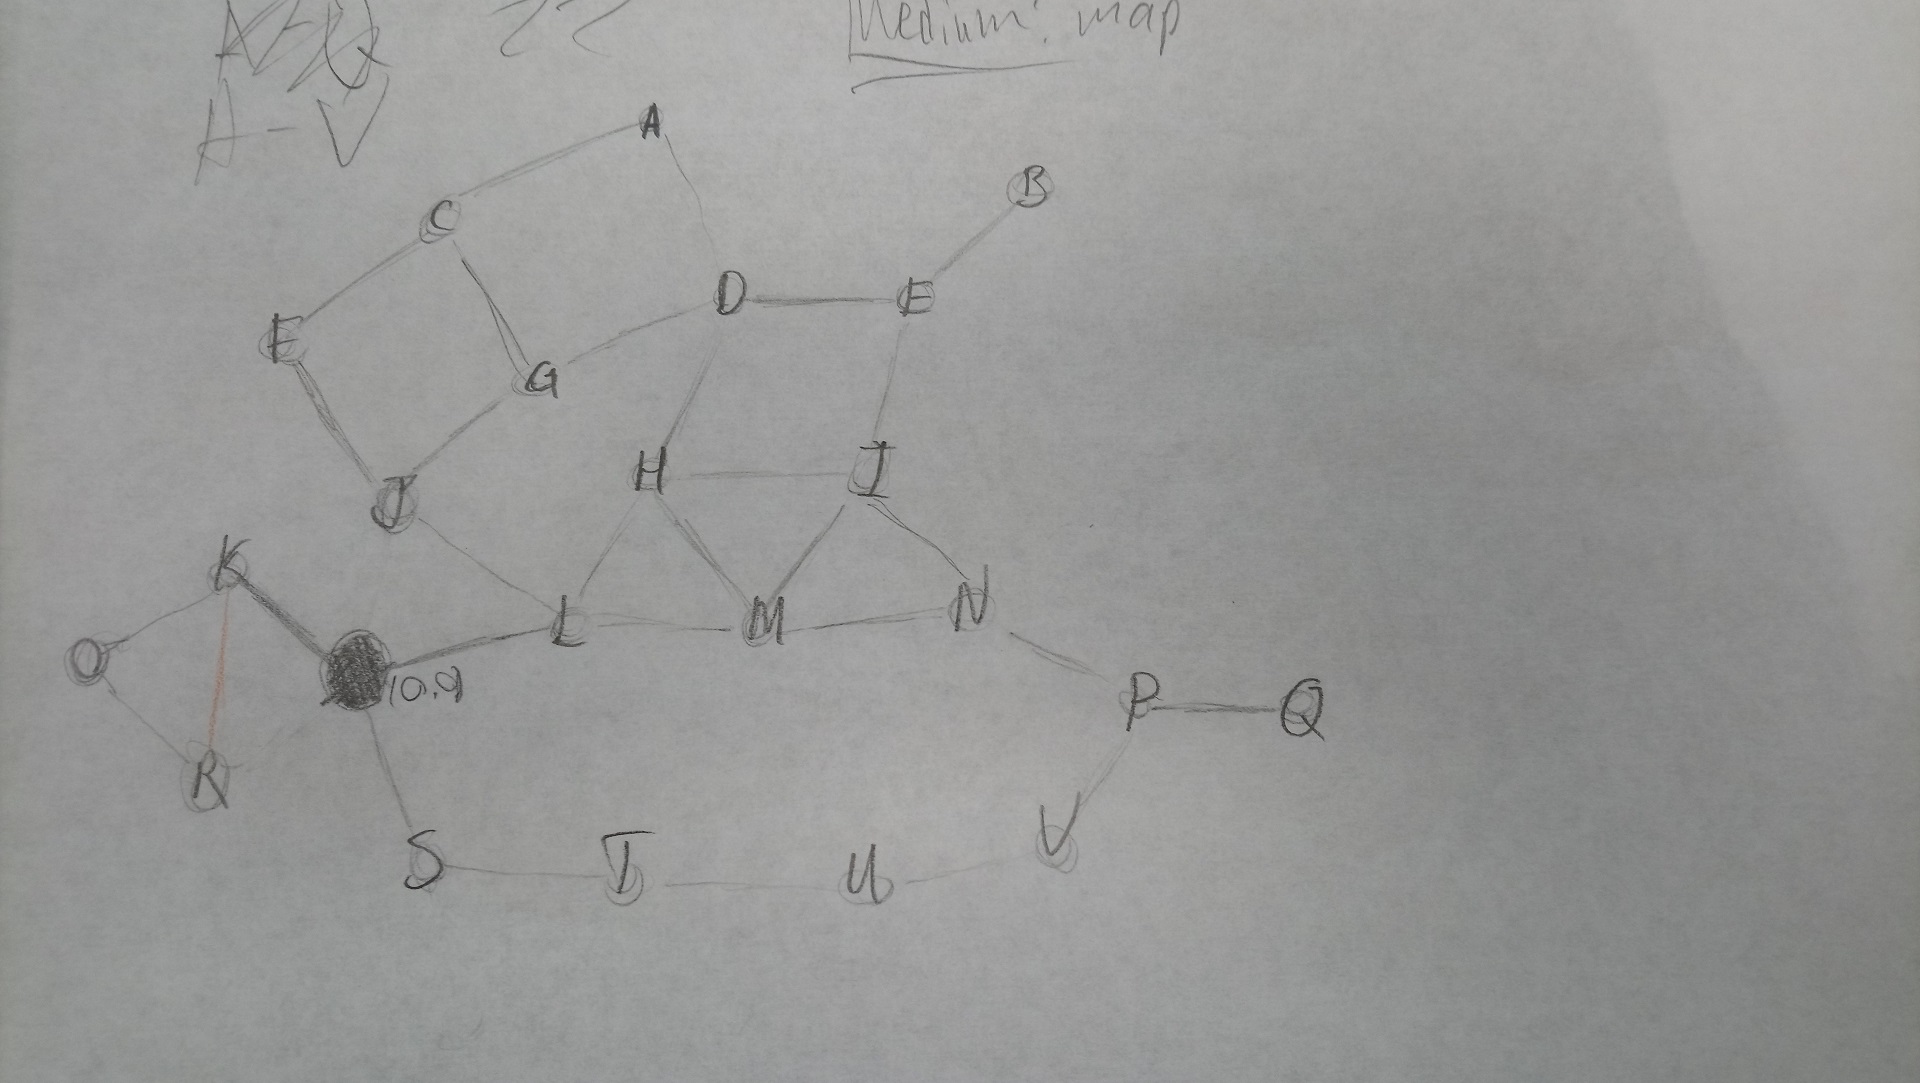 Medium: map
A-V
A
B
C
D E
E
G
H I
J
K
L M N
O
(0,0)
P Q
R
S T U V